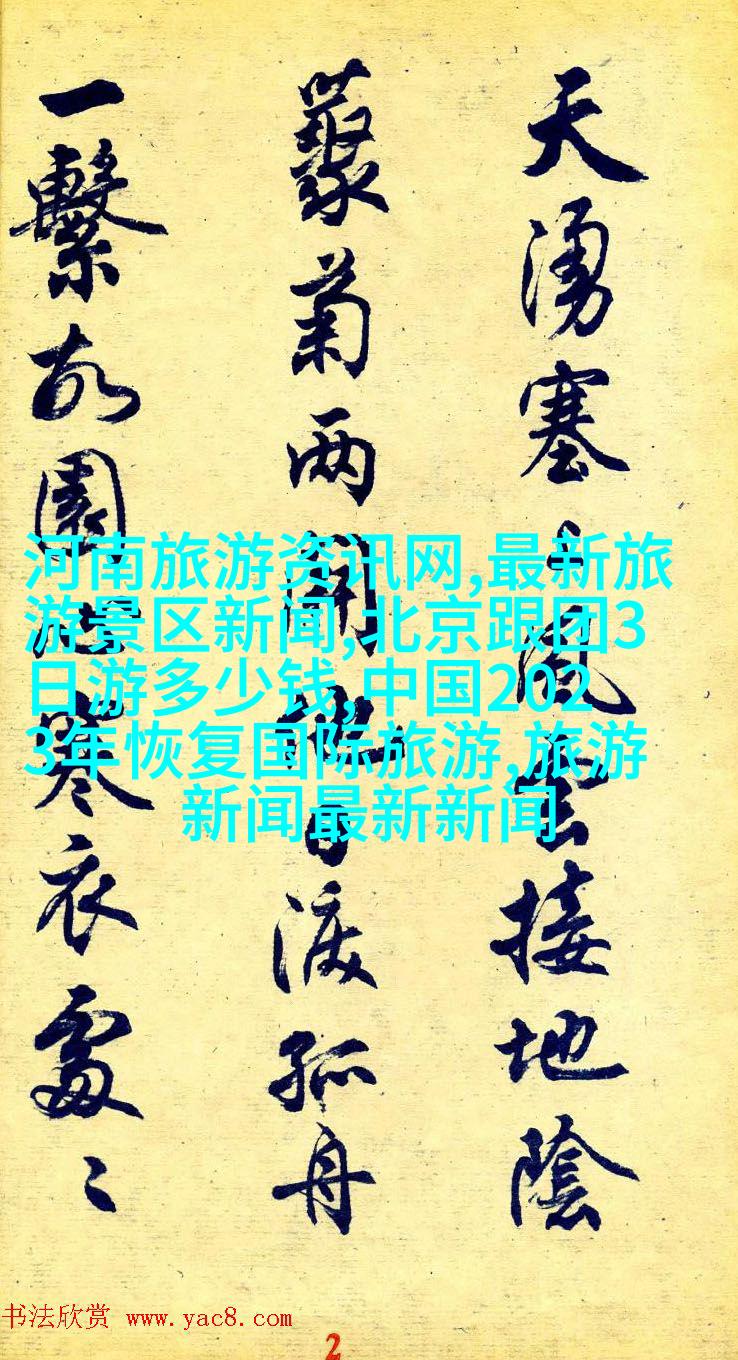 天湧塞上風雲接地陰
叢菊两開他日淚孤舟
一繫故園心寒衣處〻
河南旅游资讯网,最新旅
游景区新闻,北京跟团3
日游多少钱,中国202
3年恢复国际旅游,旅游
新闻最新新闻
书法欣赏 www.yac8.com
2